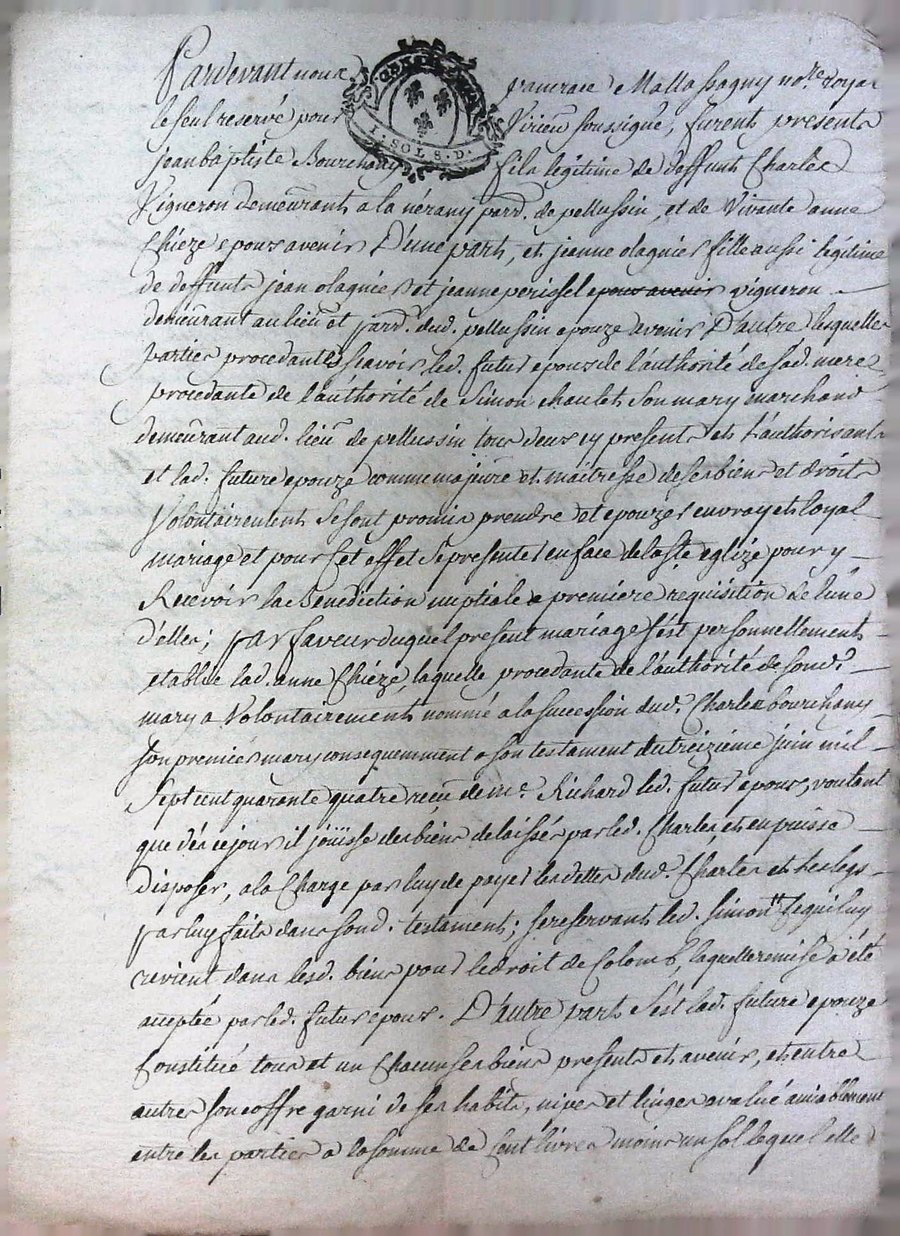 Pardevant nous pancrace Mallassagny no.re royal
le seul reservé pour Virieu soussigné, furent presents
GENER
I. SOL 8. D.
jean baptiste Bourchany fils légitime de deffunt Charles
Vigneron demeurants a la nérany parr. de pellussin, et de Vivante anne
Chieze epoux avenir D'une part, et jeanne olagnier fille aussi légitime
de deffunts jean olagnier et jeanne perissel epoux avenir vigneron
demeurant au lieu et parr. dud. pellussin epouze avenir D'autre lesquelles
parties procedantes scavoir led. futur epoux de l'authorité de sad. mere
procedante de l'authorité de Simon chaulet son mary marchand
demeurant aud. lieu de pellussin tous deux ÿ presents et l'authorisants
et lad. future epouze comme majeure et maitresse de ses biens et droits
Volontairement se sont promis prendre et epouzer en vray et loyal
mariage et pour cet effet se presenter en face de la ste eglize pour y
Recevoir la Benediction nuptiale a premiere requisition de l'une
d'elles; par faveur duquel present mariage s'est personnellement
etablie lad. anne Chieze, laquelle procedante de l'authorité de sond.
mary a Volontairement nommé a la succession dud. Charles bourchany
son premier mary consequemment a son testament du treizième juin mil
Sept cent quarante quatre reçu de me. Richard led. futur epoux, voulant
que dès ce jour il joüisse des biens delaissés par led. Charles, et en puisse
disposer, a la Charge par luy de payer les dettes dud. Charles et les legs
par luy faits dans sond. testament; se reservant led. Simon ce qui luy
revient dans lesd. biens pour le droit de Colomb, laquelle remise a été
acceptée par led. futur epoux. D'autre part s'est lad. future epouze
Constitué tous et un Chacun ses biens presents et avenir, et entre
autres son coffre garni de ses habits, nipes et linges avalué amiablement
entre les parties a la somme de Cent livres moins un sol lequel elle